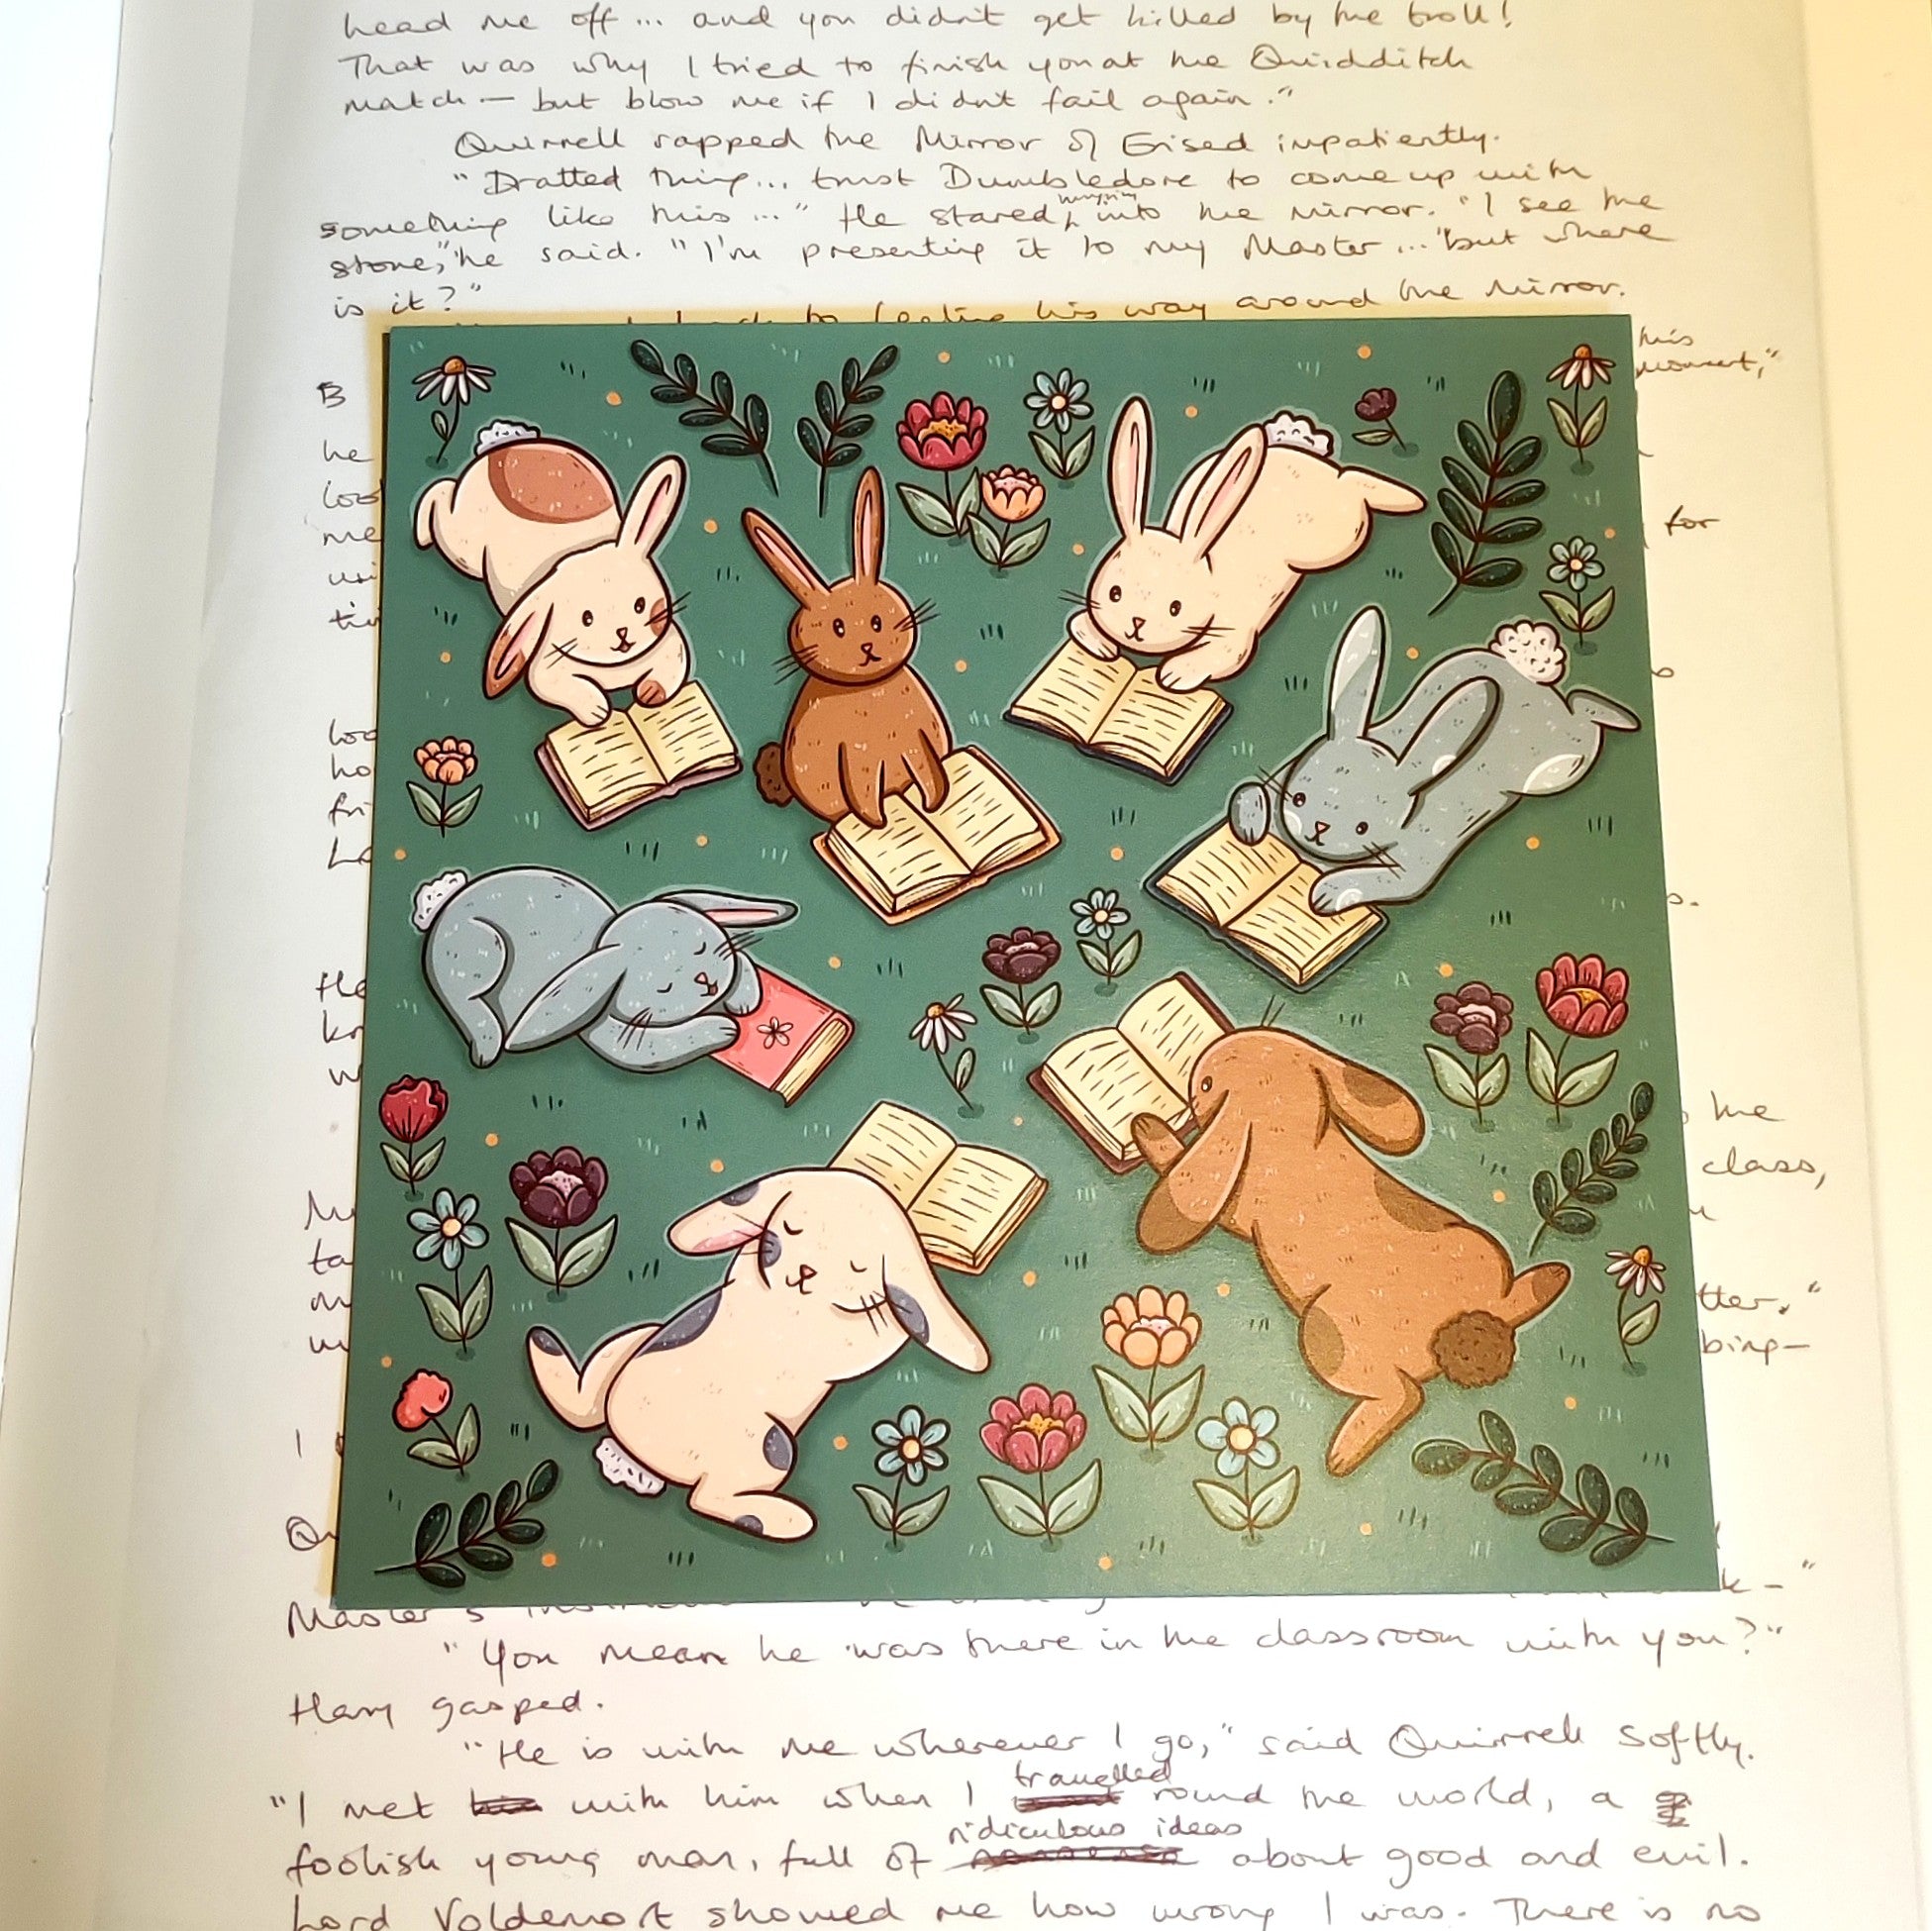 head me off... and you didn't get killed by the troll!
That was why I tried to finish you at the Quidditch
match — but blow me if I didn't fail again."
Quirrell rapped the Mirror of Erised impatiently.
"Dratted thing... trust Dumbledore to come up with
something like this..." He stared into the mirror. "I see the
stone," he said. "I'm presenting it to my Master... but where
is it?"
his way around the mirror.
his
moment,"
B
he
loo
me
for
usi
loo
ho
fri
He
kn
w
the
class,
ta
tter."
m
bing—
I
Qu
k—"
Master's
"You mean he was there in the classroom with you?"
Harry gasped.
"He is with me wherever I go," said Quirrell softly.
travelled
"I met with him when I round the world, a
ridiculous ideas
foolish young man, full of about good and evil.
Lord Voldemort showed me how wrong I was. There is no